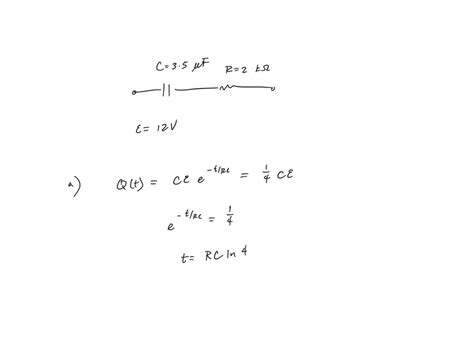 C=3.5 μF R=2 kΩ
ε= 12V
a) Q(t) = Cε e^{-t/RC} = 1/4 Cε
e^{-t/RC} = 1/4
t= RC ln 4